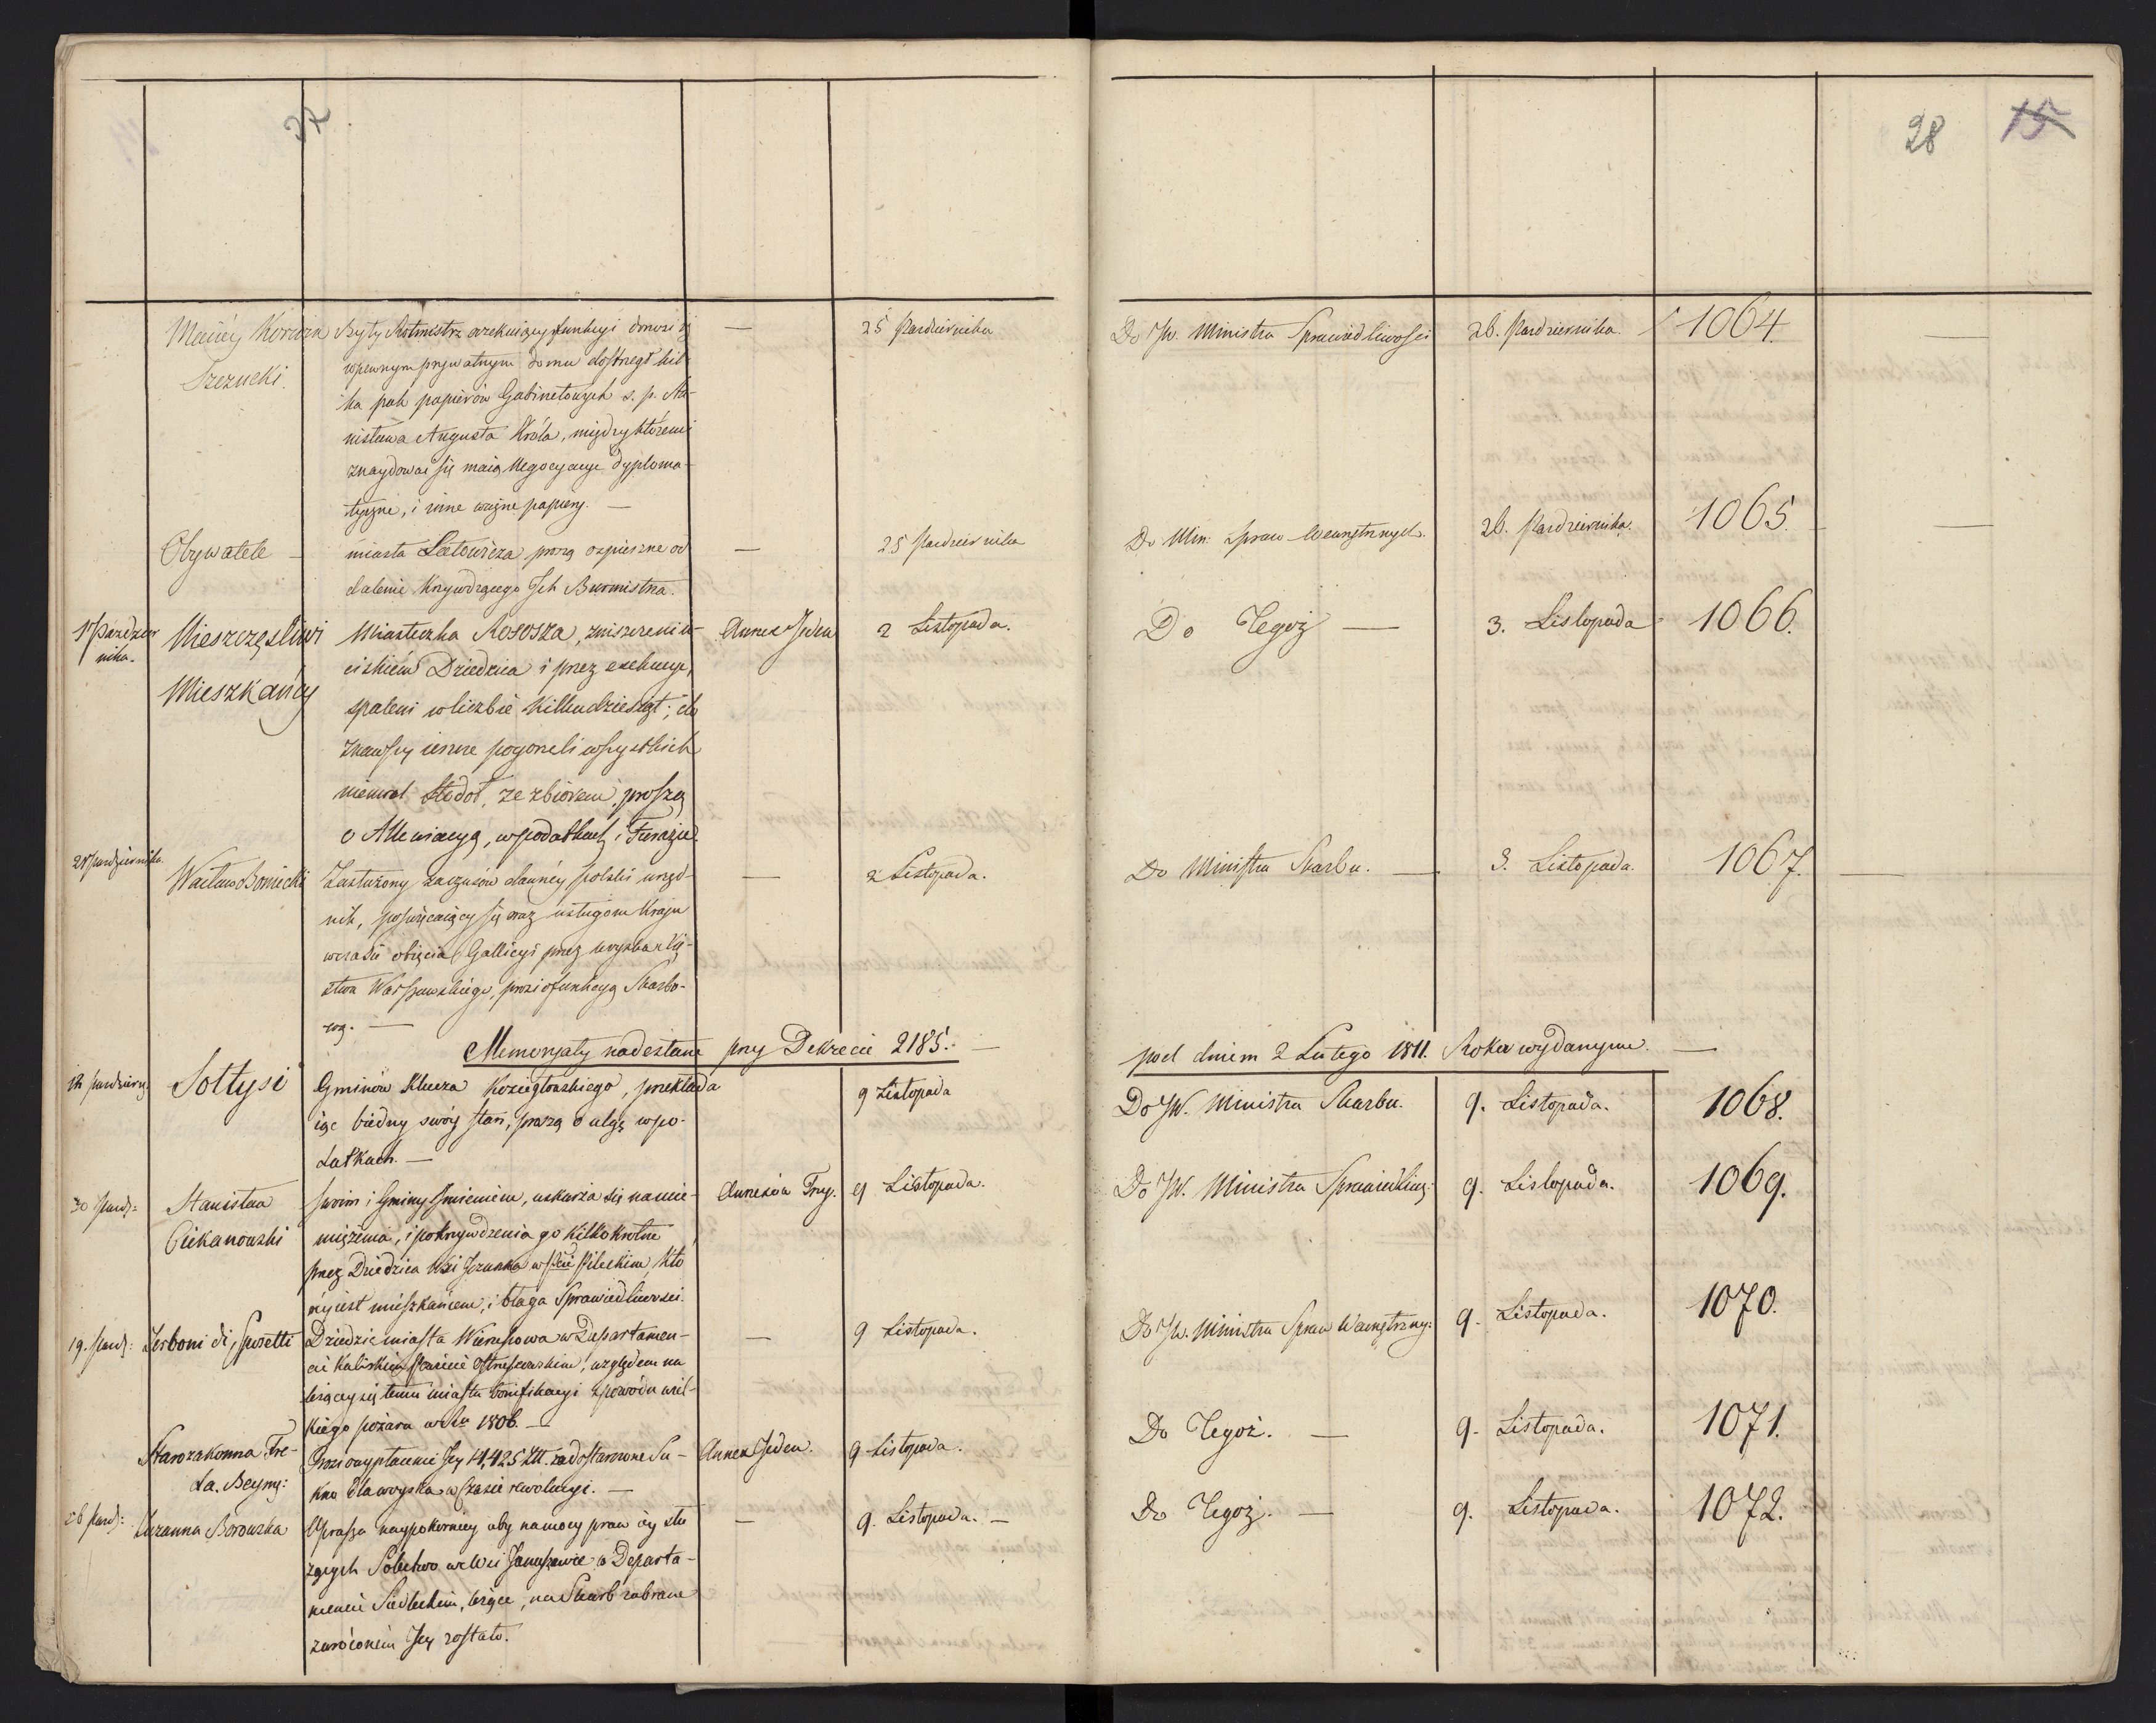 28 15
Maciey Korwin
Szezucki.
Były Rotmistrz exekwuiący funkcyi donosi iż
w pewnym prywatnym domu dostrzegł kil-
ka pak papierów Gabinetowych s. p. Sta-
nisława Augusta Króla, między któremi
znaydować się maią Negocyacye dyploma-
tyczne, i inne ważne papiery. —
—
25 Pazdziernika
Do JW. Ministra Sprawiedliwości
26. Pazdziernika.
1064.
Obywatele —
miasta Latowicza proszą o śpieszne od
dalenie krzywdzącego Ich Burmistrza.
—
25 Pazdziernika
Do Min: Spraw Wewnętrznych.
26. Pazdziernika.
1065.
1 Paździer
nika.
Nieszczęśliwi
Mieszkańcy
Miasteczka Rososza, zniszczeni u-
ciskiem Dziedzica i przez exekucye,
spaleni w liczbie kilkudziesiąt; do
znawszy iescze pogorzeli wszystkich
niemal Stodoł, ze zbiorem, proszą
o Allewiacyą, w podatkach i Furażu.
Annex Jeden
2 Listopada.
Do Tegoż —
3. Listopada
1066.
21 Pazdziernika.
Wacław Bomicki
Zasłużony zaczasów dawney Polski urzęd-
nik, poświęcaiący się oraz usługom Kraju
w czasie obięcia Gallicyi przez woyska Xię-
stwa Warszawskiego, prosi o funkcyą Skarbo-
wą. —
—
2 Listopada.
Do Ministra Skarbu. —
3. Listopada.
1067.
Memoryały nadesłane przy Dekrecie 2185. — pod dniem 2 Lutego 1811. Roku wydanym. —
Sołtysi
Gminów Klucza Koziegłowskiego, przekłada
iąc biedny swóy stan, proszą o ulgę w po-
datkach. —
9 Listopada
Do JW. Ministra Skarbu.
9. Listopada.
1068.
30 Pazd:
Stanisław
Ciekanowski
swoim i Gminy Imieniem, uskarża się na cie-
miężenia, i pokrzywdzenia go kilkokrotne
przez Dziedzica Wsi w Pcie Pileckim, kto
rey iest mieszkańcem, i błaga Sprawiedliwości.
Annexów Trzy.
9 Listopada.
Do JW. Ministra Sprawiedliwo:
9. Listopada.
1069.
19. Pazd:
Zerboni di, Sposetti
Dziedzic miasta Wieruszowa w Departamen-
cie Kaliskim Powiecie Ostrzeszowskim, względem na
leżącey się temu miastu bonifikacyi z powodu wiel-
kiego pożaru w Rku 1806. —
—
9 Listopada.
Do JW. Ministra Spraw Wewnętrzny:
9. Listopada.
1070.
Starozakonna Fre-
da. Beyny:
Prosi o wypłacenie Jey 14,425 Złł. za dostarczone Su-
kno dla woyska w Czasie rewolucyi. —
Annex Jeden.
9 Listopada.
Do Tegoż. —
9. Listopada.
1071.
26 Pazd:
Zuzanna Borowska
Uprasza naypokorniey aby na mocy praw iey słu
żących Sołectwo we Wsi Januszewie w Departa-
mencie Siedleckim, leżące, na Skarb zabrane
zwróconem Jey zostało.
—
9. Listopada. —
Do Tegoż. —
9. Listopada.
1072.